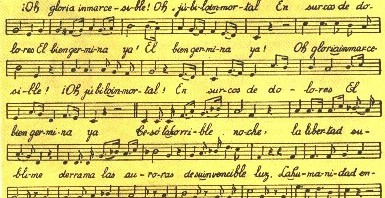 ¡Oh gloria inmarce- si-ble! Oh jú-bi-loin-mor-tal En surcos de do-
lo-res El bien germi-na ya! El bien germi-na ya! Oh gloria inmarce-
si-ble! ¡Oh jú bi loin-mor-tal! En sur-cos de do-lo-res El
bien ger mi-na ya Ce-só la horri-ble noche: la libertad su-
bli-me derrama las au-ro-ras de su invencible luz. La hu-ma-ni-dad en-